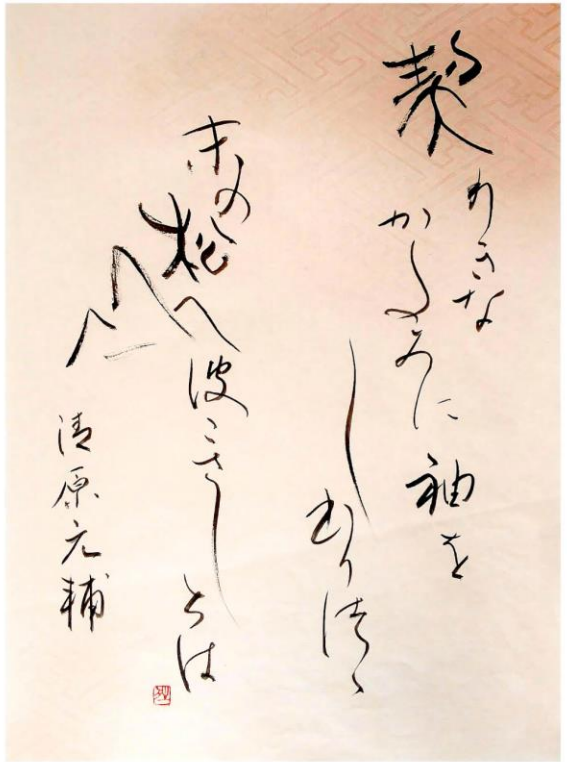 契りきな
かたみに袖を
しほりつゝ
末の松山波こさしとは
清原元輔